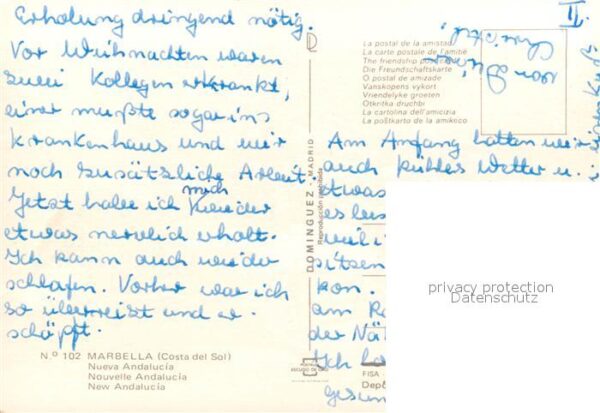 Erholung dringend nötig.
Vor Weihnachten waren
zwei Kollegen erkrankt,
einer mußte sogar ins
Krankenhaus und wir
noch zusätzliche Arbeit.
Jetzt habe ich mich wieder
etwas nervlich erholt.
Ich kann auch wieder
schlafen. Vorher war ich
so überreizt und er-
schöpft.
Nº 102 MARBELLA (Costa del Sol)
Nueva Andalucía
Nouvelle Andalucía
New Andalucía
DOMINGUEZ - MADRID
Reproducción prohibida
II.
La postal de la amistad
La carte postale de l'amitié
The friendship
Die Freundschaftskarte
O postal de amizade
Vanskopens vykort
Vriendelyke groeten
Otkritka druchbi
La cartolina dell'amicizia
La postkarta de la amikeco
Am Anfang hatten wir
auch kühles Wetter u.
etwas
es
weil
sitzen
kon.
am
der
Ich
gesun
privacy protection
Datenschutz
FISA
Depó